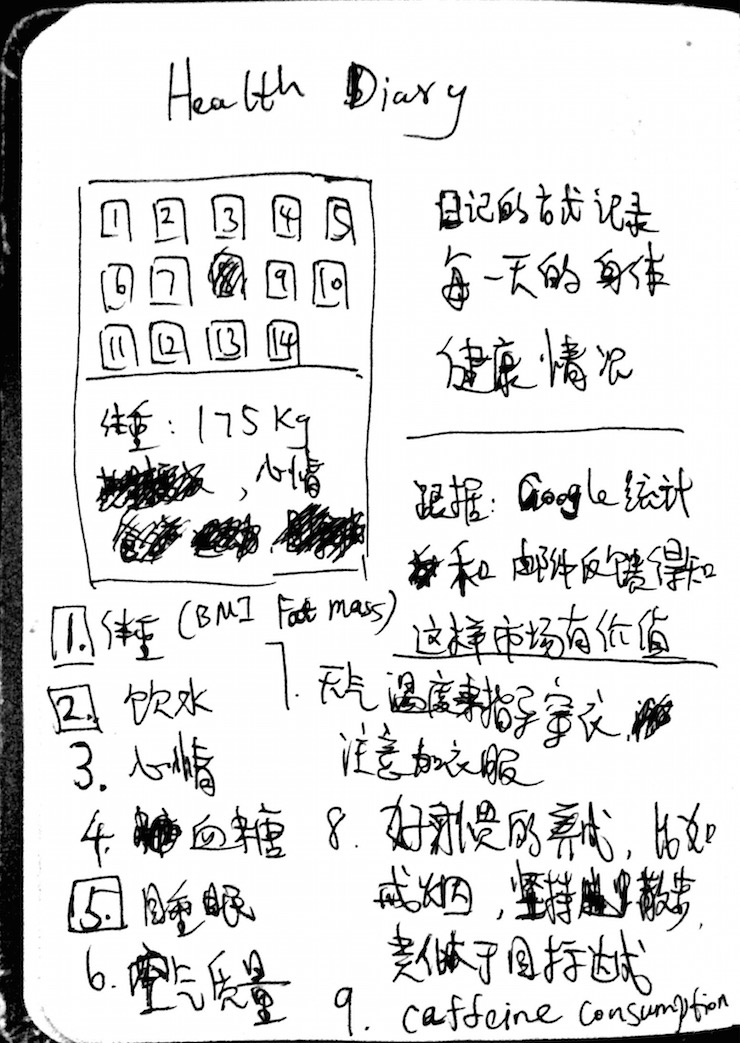 Health Diary
1 2 3 4 5
6 7 9 10
11 12 13 14
体重: 175 Kg
, 心情
日记的方式记录
每一天的身体
健康情况
跟据: Google 统计
和 邮件反馈得知
这样市场有价值
1. 体重 (BMI Fat mass)
2. 饮水
3. 心情
4. 血糖
5. 睡眠
6. 空气质量
7. 天气 温度来指导穿衣,
注意加衣服
8. 好习惯的养成, 比如
戒烟, 坚持散步,
类似于目标达成
9. caffeine consumption